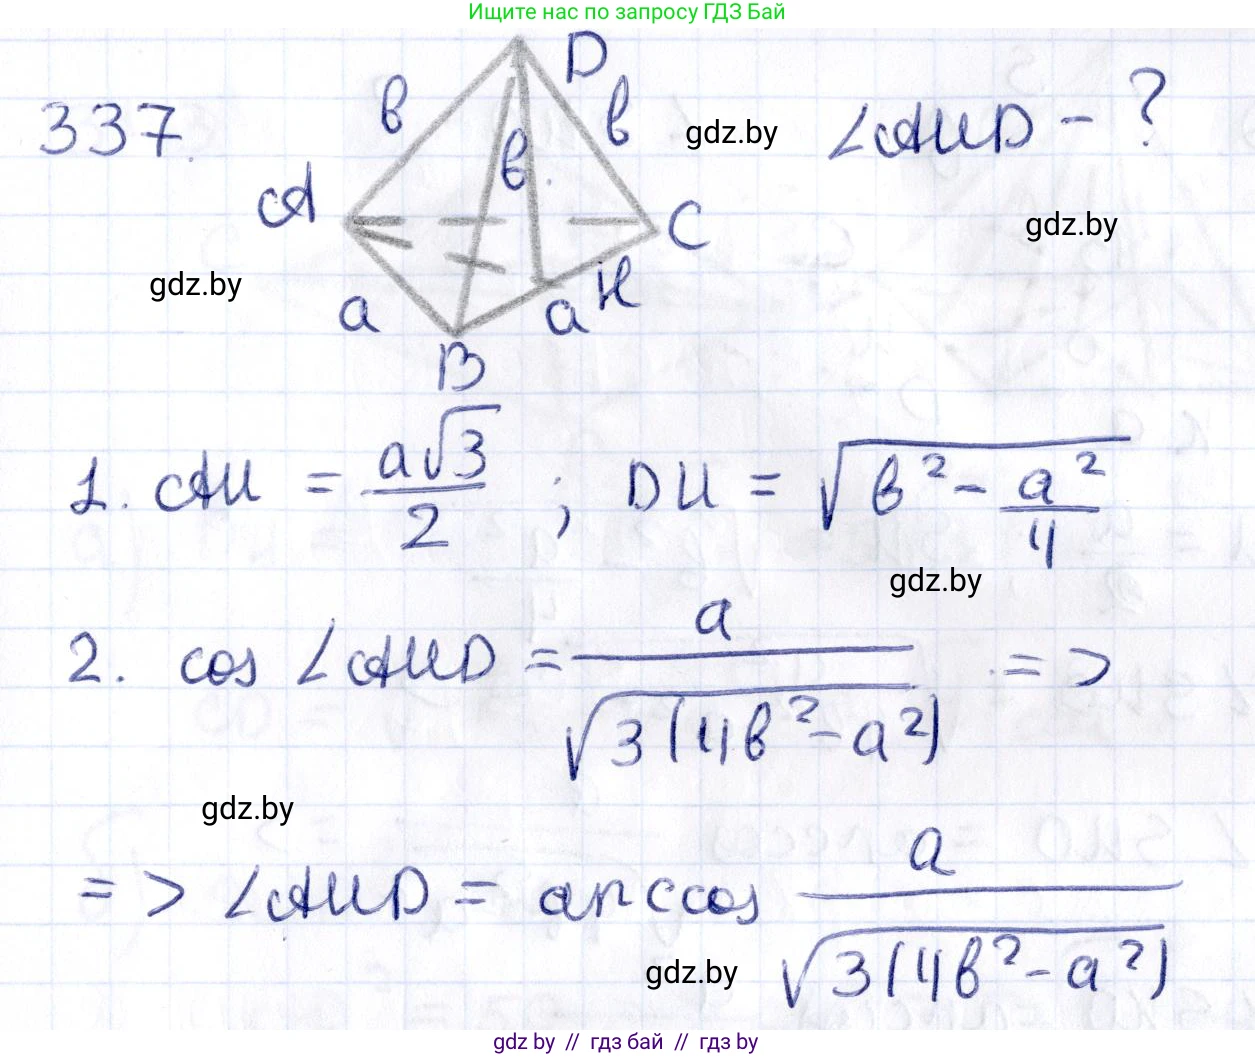 Ищите нас по запросу ГДЗ Бай
337.
D
в
в
в
∠AHD - ?
gdz.by
A
C
gdz.by
gdz.by
H
a
a
B
1. AH = a√3/2 ; DH = √(в² - a²/4)
gdz.by
2. cos ∠AHD = a/√(3(4в² - a²)) =>
gdz.by
=> ∠AHD = arccos a/√(3(4в² - a²))
gdz.by
gdz.by // гдз бай // гдз by